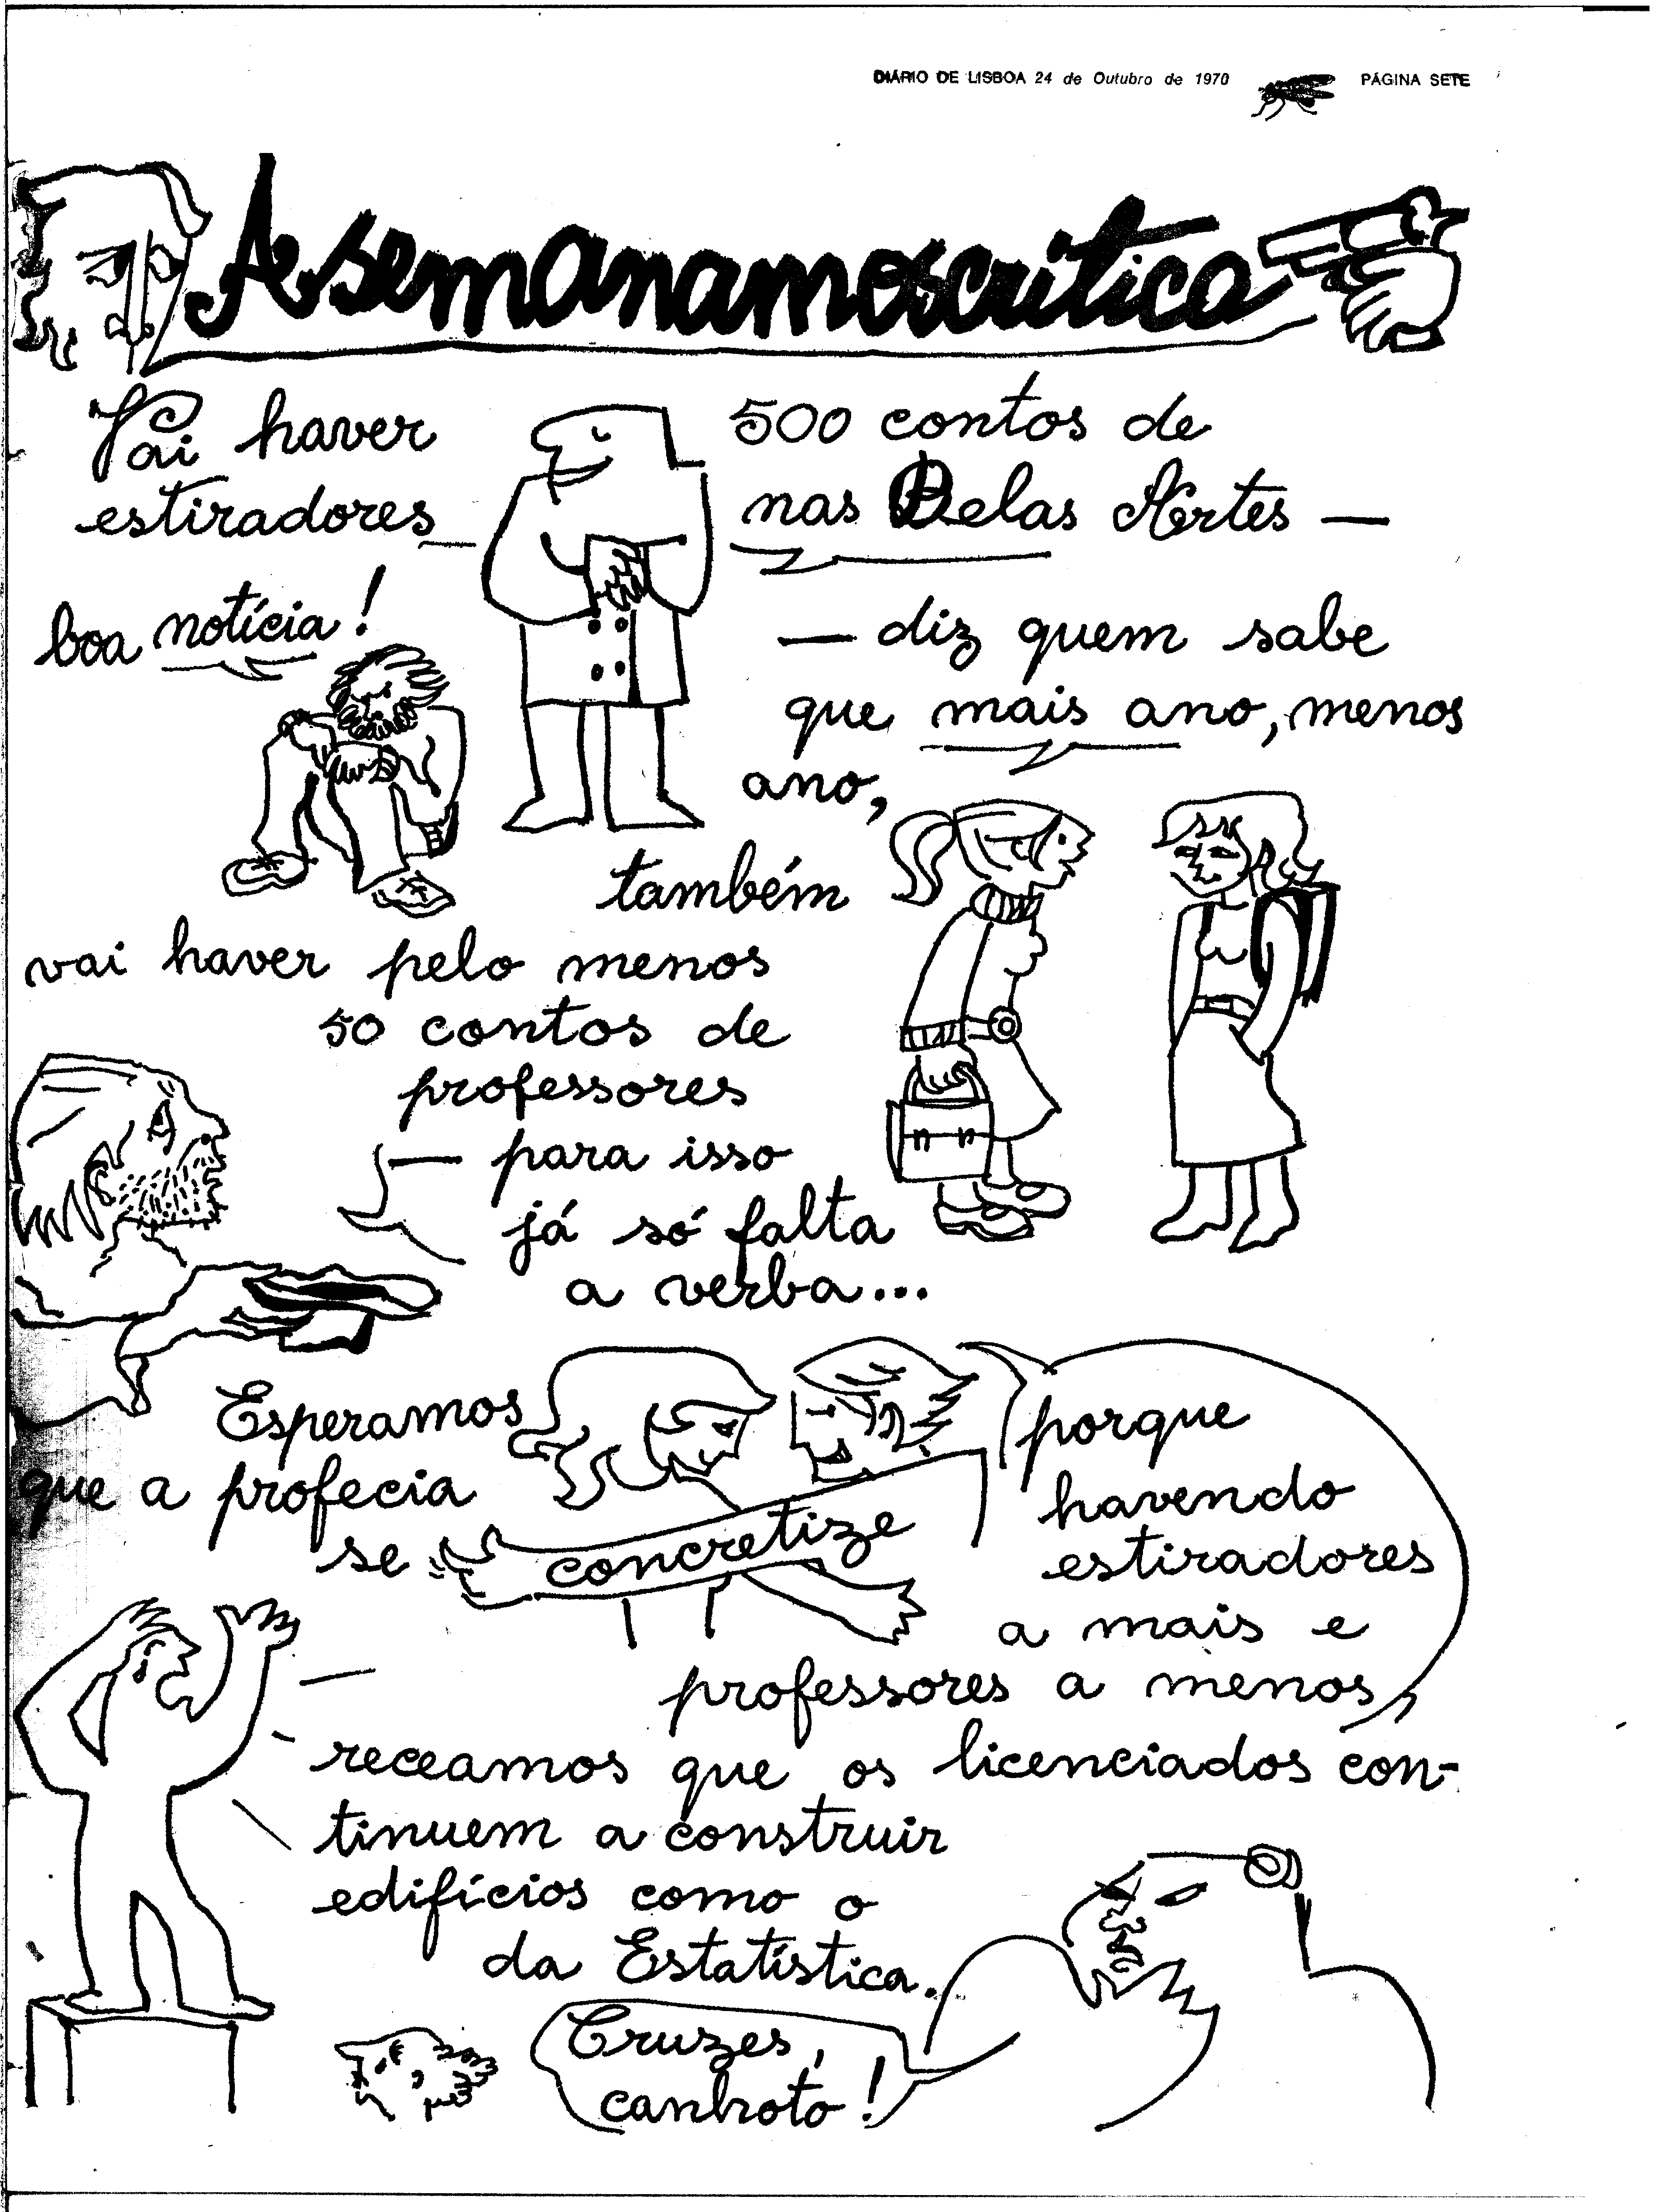 DIÁRIO DE LISBOA 24 de Outubro de 1970 PÁGINA SETE
A semanamoscritica
Vai haver 500 contos de
estiradores nas Belas Artes —
boa notícia!
— diz quem sabe
que mais ano, menos
ano,
também
vai haver pelo menos
50 contos de
professores
— para isso
já só falta
a verba...
Esperamos
que a profecia
se concretize
porque
havendo
estiradores
a mais e
professores a menos,
receamos que os licenciados con-
tinuem a construir
edifícios como o
da Estatística.
Cruzes,
canhoto!